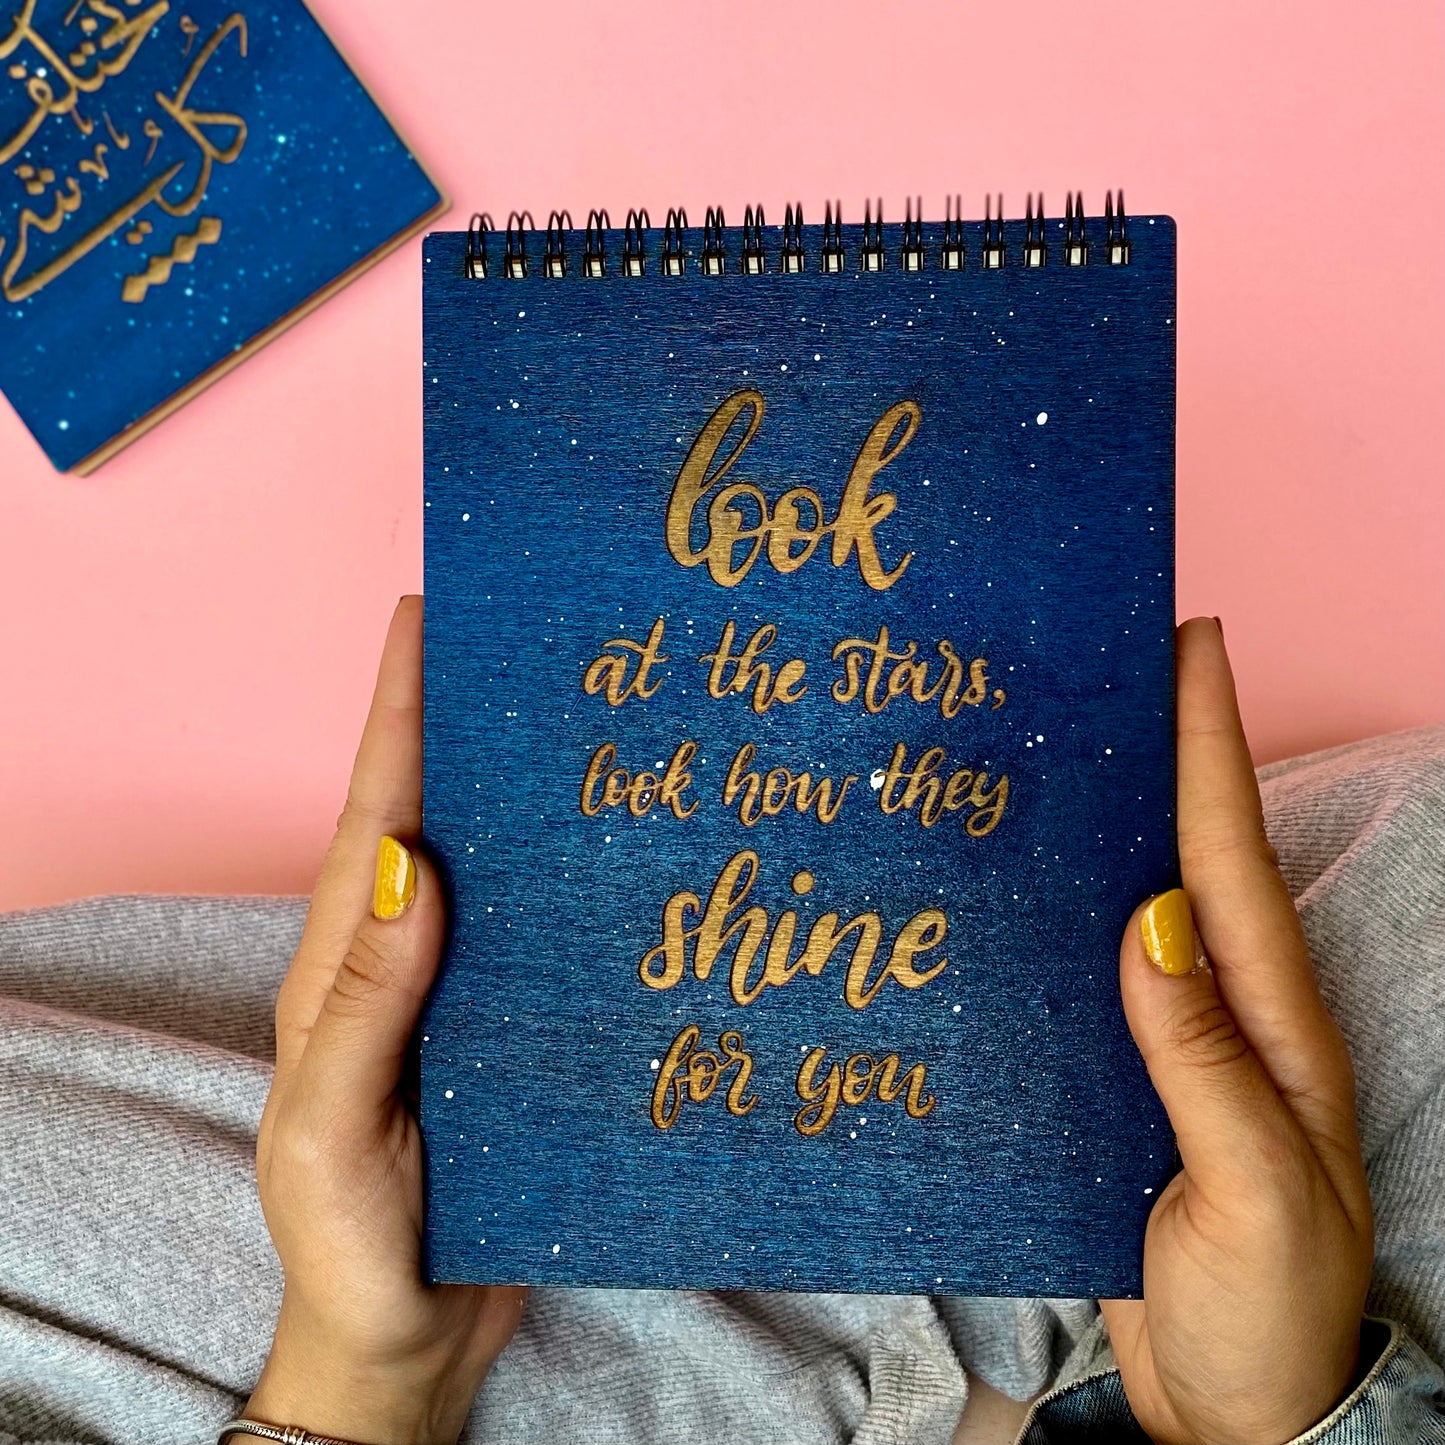 look
at the stars,
look how they
shine
for you
كل شي
بختلف